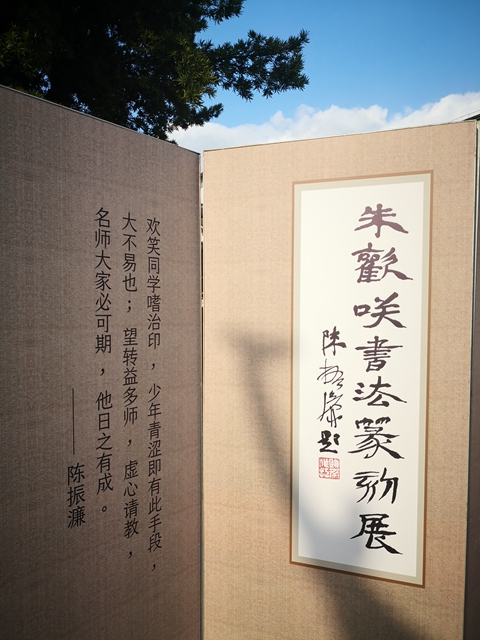 朱歡咲書法篆刻展
陈振濂题
欢笑同学嗜治印，少年青涩即有此手段，
大不易也；望转益多师，虚心请教，
名师大家必可期，他日之有成。
——陈振濂